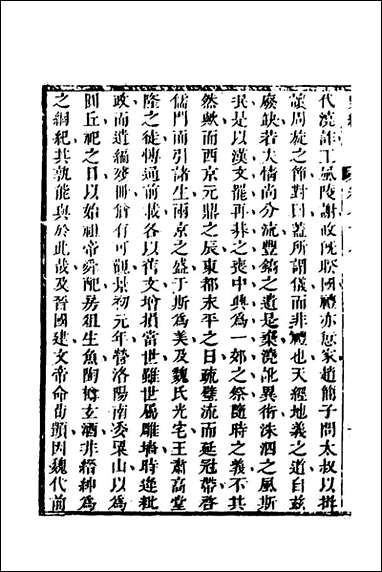 代澆詐王風陵謝政既睽國禮亦愆家趙簡子問太叔以揖
讓周旋之節對曰蓋所謂儀而非禮也天經地義之道自兹
廢缺若夫情尚分流豐鎬之道是棄澆訛異術洙泗之風斯
泯是以漢文罷再朞之喪中興為一郊之祭隨時之義不其
然歟而西京元鼎之辰東都永平之日疏璧流而延冠帶啓
儒門而引諸生兩京之盛于斯為美及魏氏光宅王肅高堂
隆之徒博通前載各以舊文增損當世雖世屬雕墻時逢秕
政而遺編殘冊猶有可觀景初元年營洛陽南委粟山以為
圜丘祀之日以始祖帝舜配房俎生魚陶樽玄酒非縉紳為
之綱紀其孰能與於此哉及晉國建文帝命荀顗因魏代前